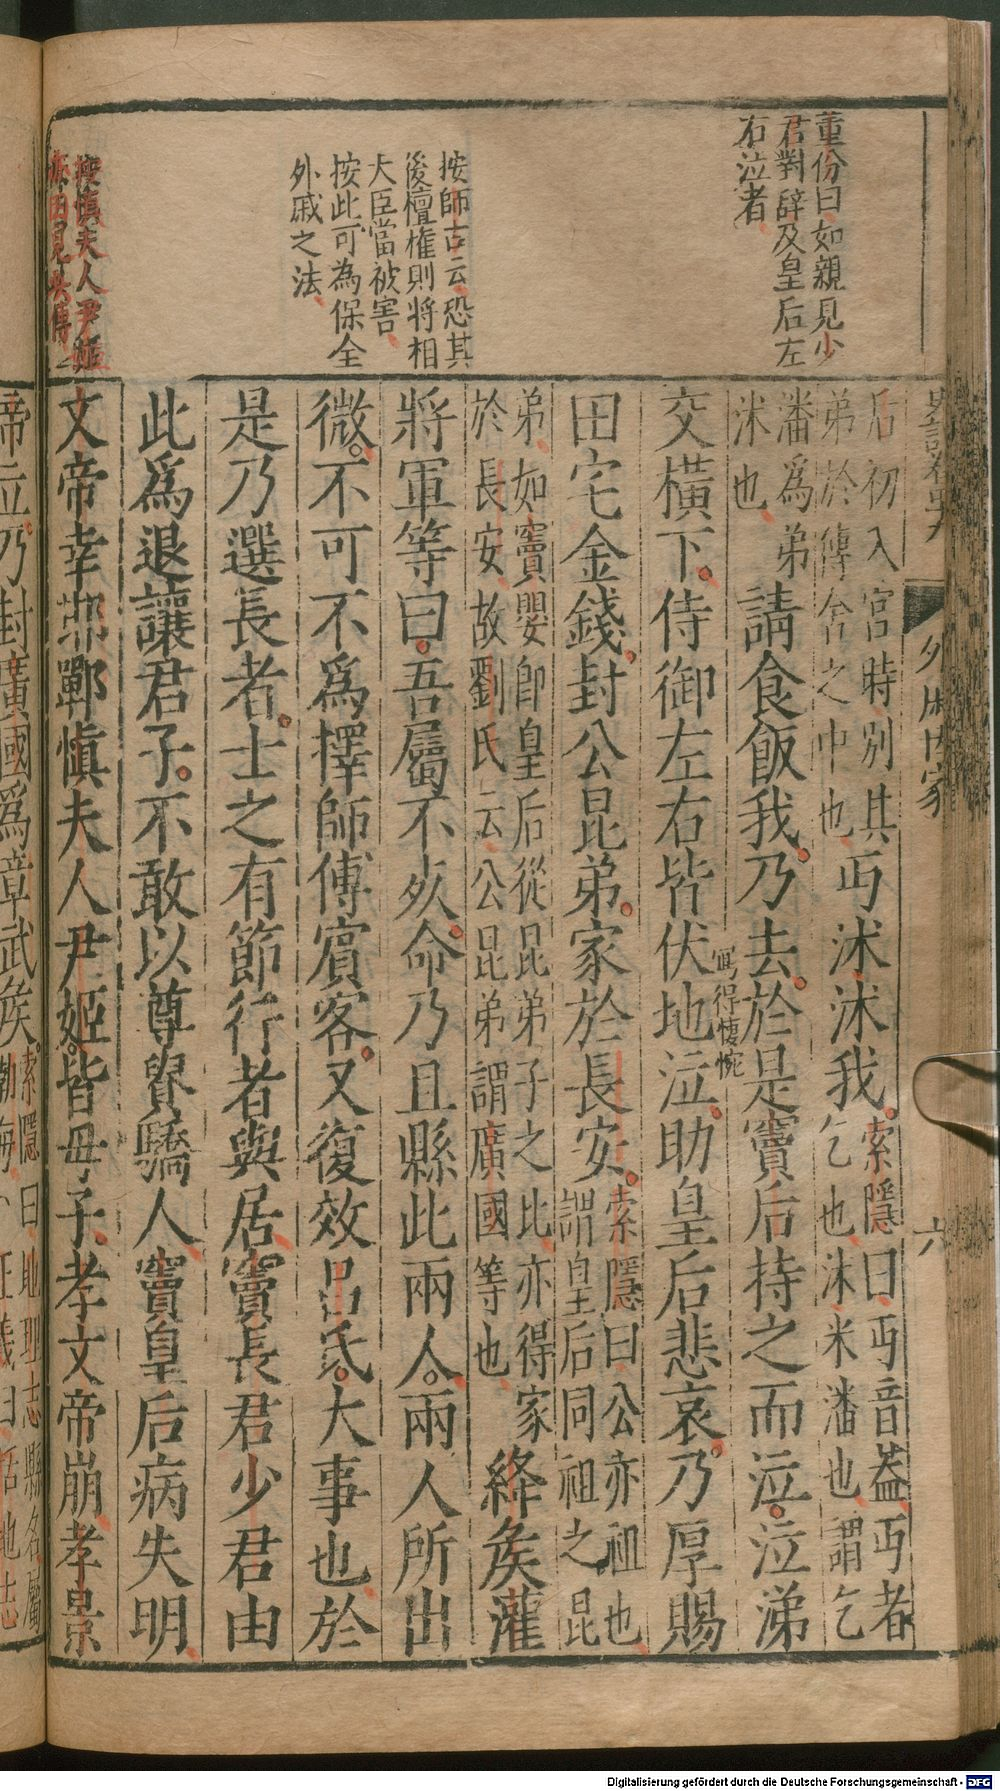 董份曰如親見少
君對辭及皇后左
右泣者
按師古云恐其
後檀權則將相
大臣當被害
按此可為保全
外戚之法
按慎夫人尹姬
六
后初入宮時別其
弟於傳舍之中也
丐沐沐我
索隱曰丐音葢丐者
乞也沐米潘也謂乞
潘為弟
沐也
請食飯我乃去於是竇后持之而泣泣涕
寫得悽惋
交橫下侍御左右皆伏地泣助皇后悲哀乃厚賜
田宅金錢封公昆弟家於長安
索隱曰公亦祖也
謂皇后同祖之昆
弟如竇嬰即皇后從昆弟子之比亦得家
於長安故劉氏云公昆弟謂廣國等也
絳矦灌
將軍等曰吾屬不死命乃且縣此兩人兩人所出
微不可不爲擇師傅賓客又復效呂氏大事也於
是乃選長者士之有節行者與居竇長君少君由
此爲退讓君子不敢以尊貴驕人竇皇后病失明
文帝幸邯鄲慎夫人尹姬皆毋子孝文帝崩孝景
帝立乃封廣國爲章武矦
索隱曰地理志縣名屬
勃海
正義曰括地志
Digitalisierung gefördert durch die Deutsche Forschungsgemeinschaft - DFG